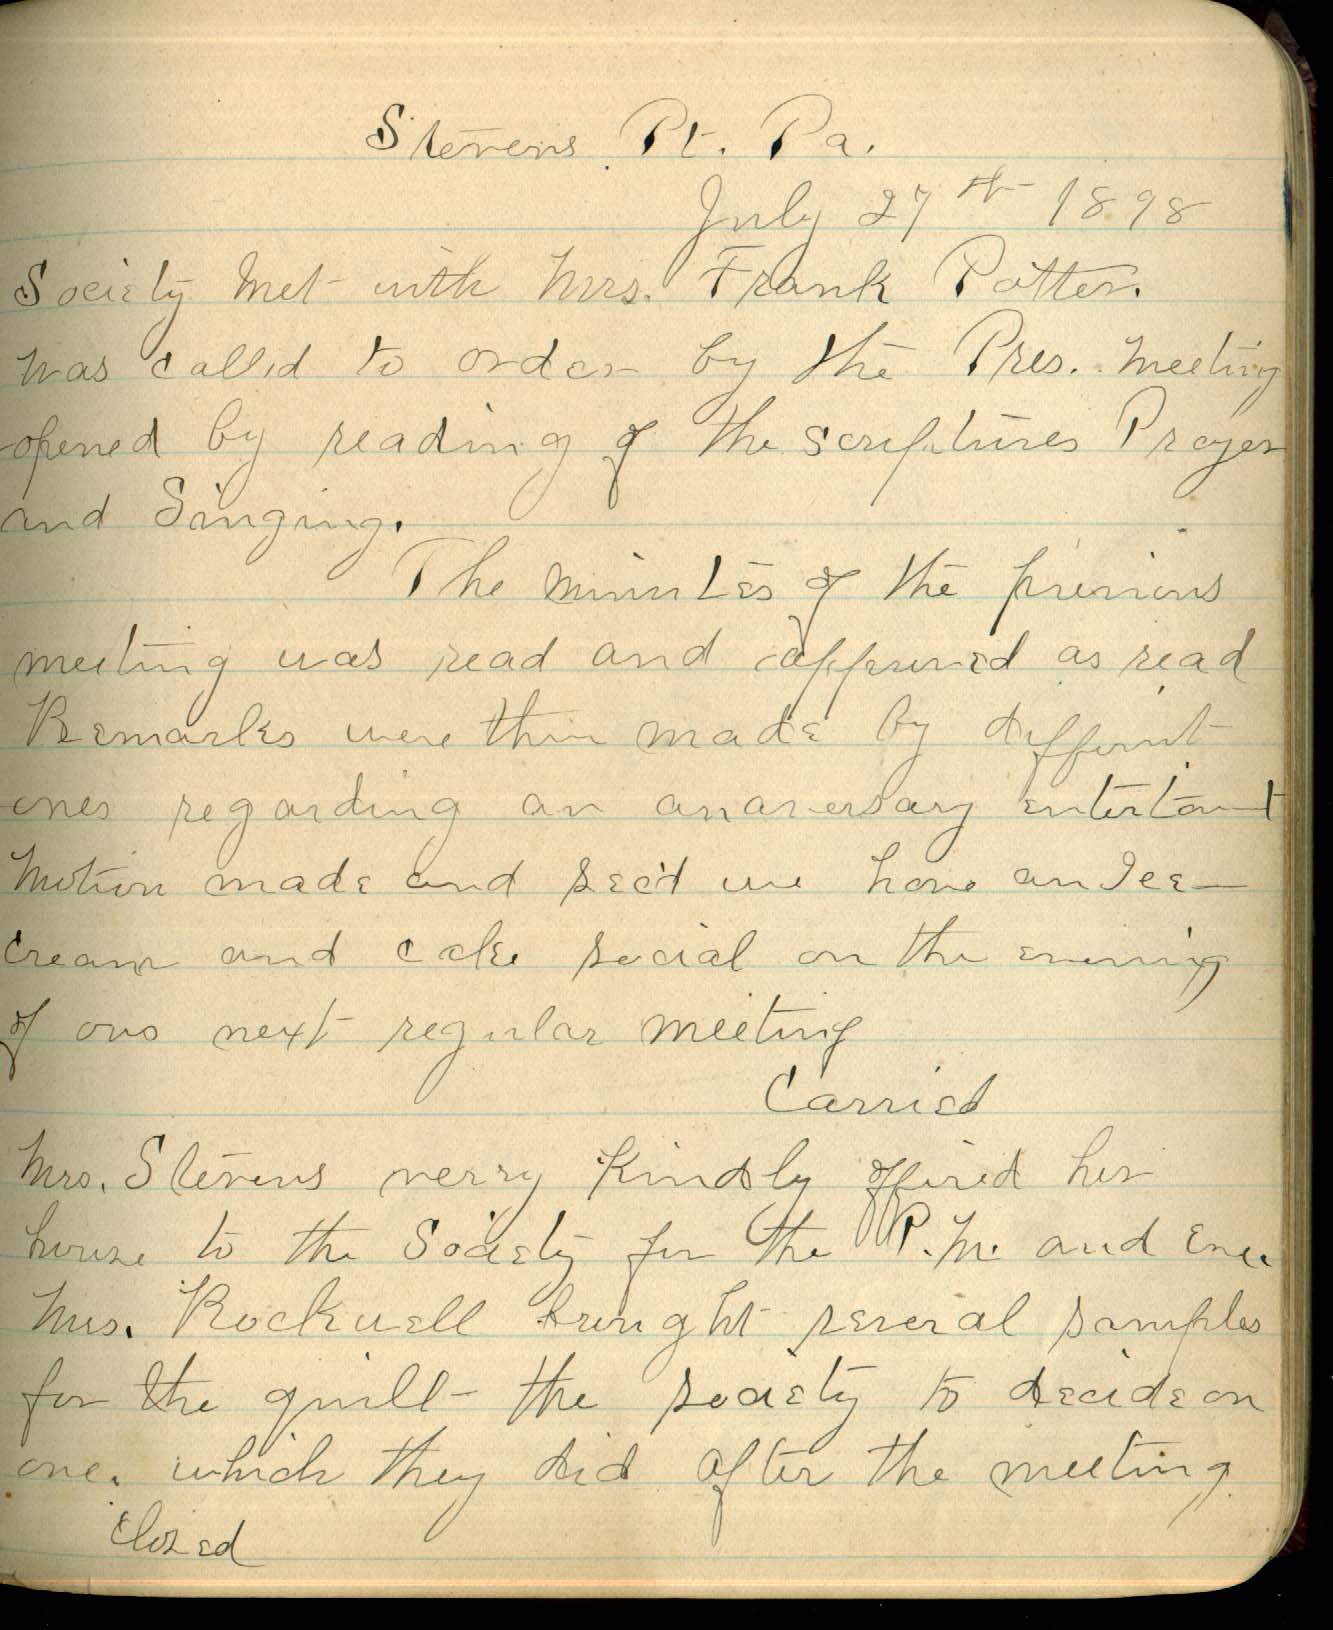 Stevens Pt. Pa.
July 27th 1898
Society Met with Mrs. Frank Potter.
was called to order by the Pres. Meeting
opened by reading of the scriptures Prayer
and Singing.
The minutes of the previous
meeting was read and approved as read
Remarks were then made by different
ones regarding an anaversary entertant
Motion made and sec'd we have an Ice-
cream and cake social on the evening
of our next regular meeting
Carried
Mrs. Stevens verry Kindly offered her
house to the Society for the P.M. and Eve.
Mrs. Rockwell brought several samples
for the quilt - the society to decide on
one. which they did after the meeting
closed